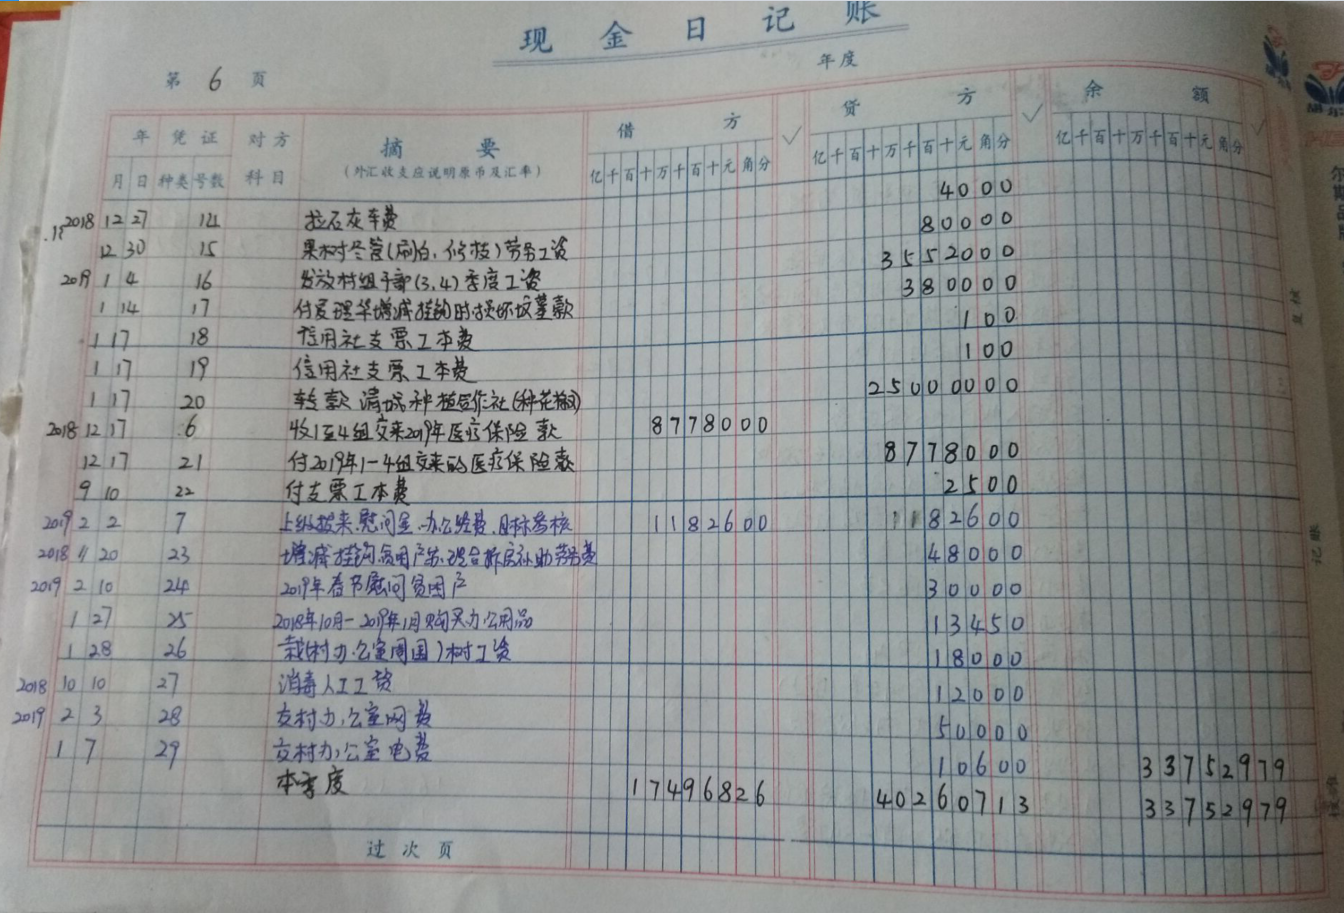 现金日记账
年度
第 6 页
年 凭证 对方 摘要 借方 贷方 余额
月 日 种类 号数 科目 (外汇收支应说明原币及汇率) 亿千百十万千百十元角分 亿千百十万千百十元角分 亿千百十万千百十元角分
2018 12 27 14 拉石灰车费 4000
12 30 15 果树冬管(刷白、修枝)劳务工资 80000
2019 1 4 16 发放村组干部(3,4)季度工资 3552000
1 14 17 付 增减挂钩时损坏坟墓款 380000
1 17 18 信用社支票工本费 100
1 17 19 信用社支票工本费 100
1 17 20 转款 种植合作社(种花椒) 25000000
2018 12 17 6 收1至4组交来2019年医疗保险款 8778000
12 17 21 付2019年1-4组交来的医疗保险款 8778000
9 10 22 付支票工本费 2500
2019 2 2 7 上级拨来慰问金、办公经费、目标考核 1182600 1182600
2018 11 20 23 增减挂钩贫困户 拆房补助劳务费 48000
2019 2 10 24 2019年春节慰问贫困户 30000
1 27 25 2018年10月-2019年1月购买办公用品 13450
1 28 26 栽(村办公室周围)树工资 18000
2018 10 10 27 消毒人工工资 12000
2019 2 3 28 交村办公室网费 50000
1 7 29 交村办公室电费 10600 33752979
本季度 17496826 40260713 33752979
过次页
复核
记账